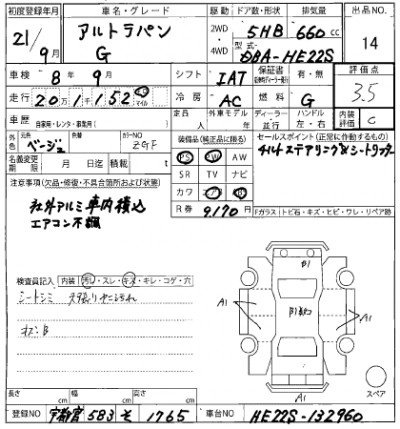 初度登録年月 車名・グレード 駆動 ドア数・形状 排気量 出品NO
21/9月 アルトラパン G 2WD 4WD 5HB 660cc 14
型式 DBA-HE22S
車検 8年 9月 シフト IAT 保証書 有・無 評価点
走行 20万1千152 マイル 冷房 AC 燃料 G 3.5
車歴 自家用・レンタ・事業用( ) 定員 人 外車モデル 年 ディーラー・並行 ハンドル 左・右 内装評価 C
外色 元色 ベージュ 色替 カラーNO ZGF 装備品(純正品に限る) セールスポイント(正常に作動するもの)
名義変更期限 月 日迄 積載 t PS AW チルトステアリング&シートリフター
注意事項(欠品・修復・不具合箇所および状態) SR TV ナビ
社外アルミ車内積込 カワ
エアコン不調 R券 9,170円 Fガラス トビ石・キズ・ヒビ・ワレ・リペア跡
検査員記入 内装 汚レ・スレ・キズ・キレ・コゲ・穴
シートシミ
A1 A1 A1
スペア
長さ cm 幅 cm 高さ cm
登録NO 宇都宮 583 そ 1765 車台NO HE22S-132960